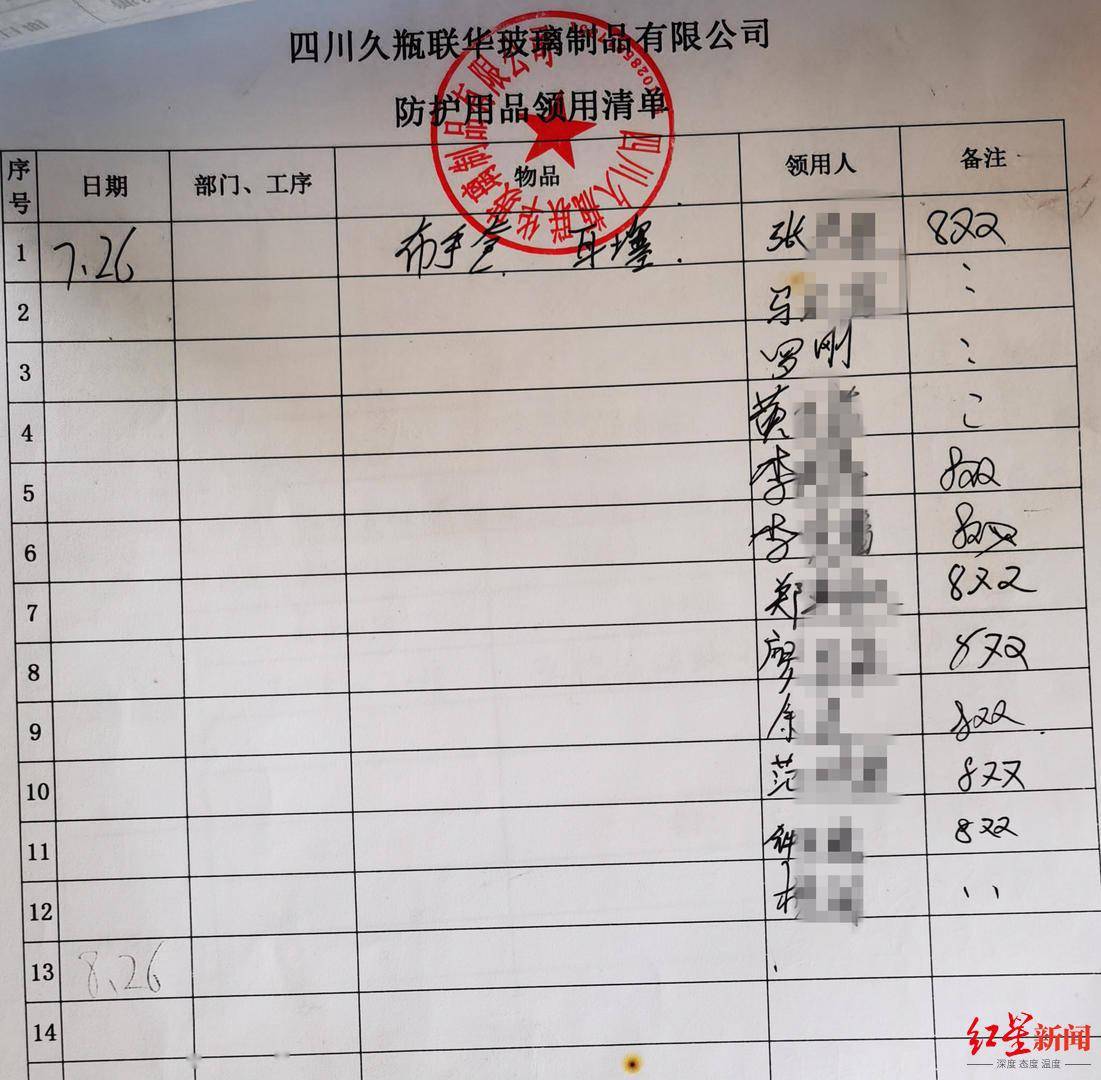 四川久瓶联华玻璃制品有限公司
防护用品领用清单
四川久瓶联华玻璃制品有限公司
序号 日期 部门、工序 物品 领用人 备注
1 7.26 布手套 耳塞 张 8双
2 马
3 罗刚
4 黄
5 李 8双
6 李 8双
7 郑 8双
8 廖 8双
9 余 8双
10 范 8双
11 8双
12
13 8.26
14
红星新闻
深度 态度 温度